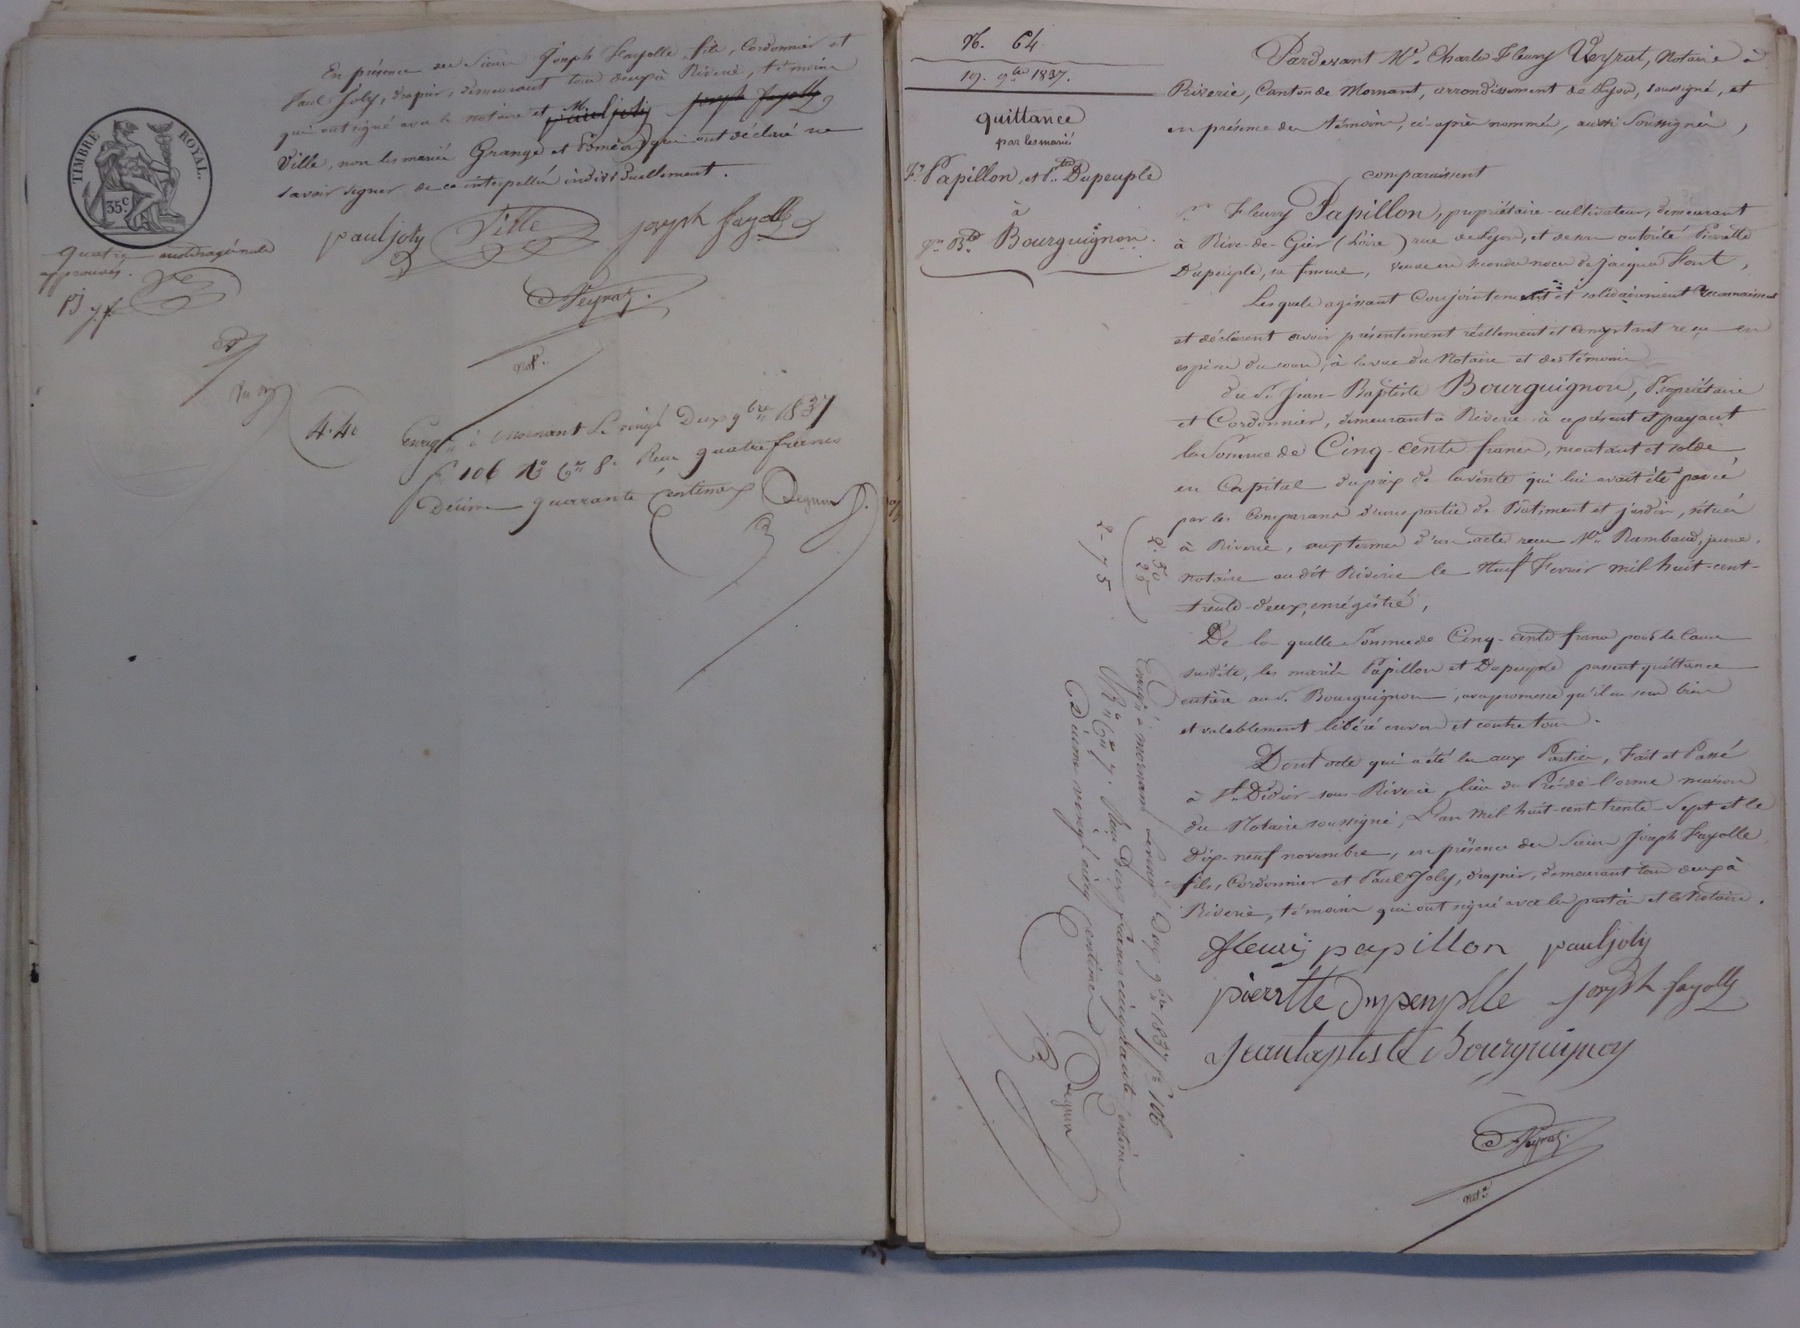 TIMBRE ROYAL.
35c
En présence des Sieurs Joseph Fayolle fils, Cordonnier et
Paul Joly, drapier, demeurant tous deux à Riverie, témoins
qui ont signé avec le notaire et M.
Ville, non les mariés Grange et qui ont déclaré ne
savoir signer de ce interpellés individuellement.
paul joly Ville joseph fayolle
quatre
approuvés.
pj j.f.
Veyrat.
not.
4.40
Enregté à Mornant le vingt Deux 9bre 1837
fo 106 Ro Cen 8. Reçu quatre francs
Décime quarante centimes
N. 64
19. 9bre 1837.
quittance
par les mariés
Fy Papillon, et Pte Dupeuple
à
Jn Bte Bourguignon.
Pardevant Me Charles Fleury Veyrat, Notaire à
Riverie, Canton de Mornant, arrondissement de Lyon, soussigné, et
en présence des témoins, ci après nommés, aussi soussignés,
comparaissent
Sr Fleury Papillon, propriétaire-cultivateur, demeurant
à Rive-de-Gier (Loire) rue de Lyon, et de son autorité Pierrette
Dupeuple, sa femme, veuve en secondes noces de Jacques Font,
Lesquels agissant Conjointement et solidairement reconnaissent
et déclarent avoir présentement réellement et comptant reçu en
espèces du cours, à la vue du Notaire et des témoins
du Sr Jean-Baptiste Bourguignon, Propriétaire
et Cordonnier, demeurant à Riverie à ce présent et payant
la Somme de Cinq-cents francs, montant et solde
en Capital du prix de la vente qui lui avait été passée
par les Comparans d'une partie de Bâtiment et jardin, situés
à Riverie, aux termes d'un acte reçu Me Rambaud, jeune,
notaire au dit Riverie le Neuf Fevrier mil-huit-cent-
trente-deux, enrégistré,
De la quelle Somme de Cinq-cents francs pour la Cause
susdite, les mariés Papillon et Dupeuple passent quittance
entière au Sr Bourguignon, avec promesse qu'il en sera bien
et valablement libéré envers et contre tous.
Dont acte qui a été lu aux Parties, Fait et Passé
à St Didier-sous-Riverie, lieu du Pré-de-l'orme maison
du Notaire soussigné, L'an Mil-huit-cent-trente-Sept et le
Dix-neuf novembre, en présence des Sieurs Joseph Fayolle
fils, Cordonnier et Paul Joly, drapier, demeurant tous deux à
Riverie, témoins qui ont signé avec les parties et le Notaire.
fleury papillon paul joly
pierette dupeuplle joseph fayolle
Jeanbaptiste Bourguignon
Veyrat.
note
2.50
25
2-75
Enregté à Mornant le vingt Deux 9bre 1837 fo 106
Ro Cen 7. Reçu Deux francs cinquante centimes
Décime vingt cinq Centimes